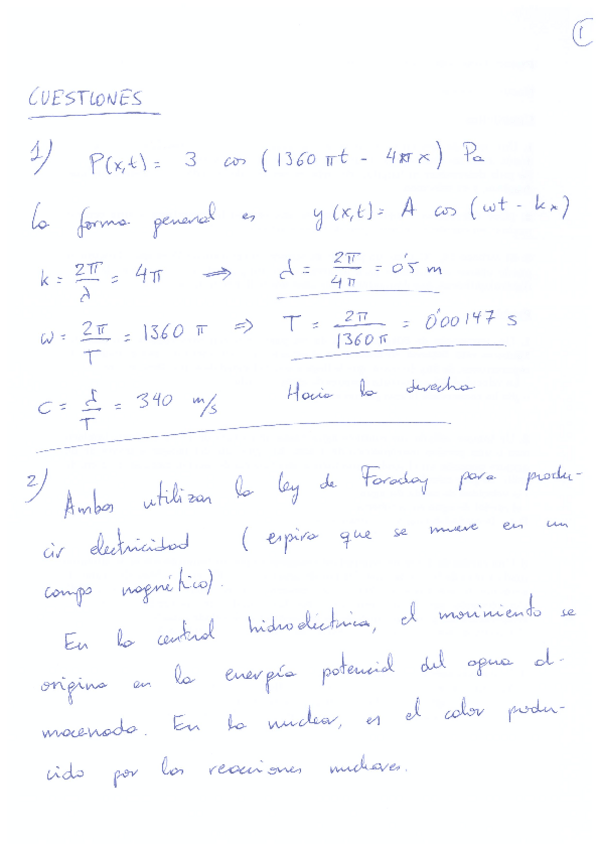 1
CUESTIONES
1) P(x,t) = 3 cos (1360 πt - 4πx) Pa
La forma general es y(x,t) = A cos (ωt - kx)
k = 2π/λ = 4π ⇒ λ = 2π/4π = 0'5 m
ω = 2π/T = 1360 π ⇒ T = 2π/1360π = 0'00147 s
C = λ/T = 340 m/s Hacia la derecha
2) Ambas utilizan la ley de Faraday para produ-
cir electricidad (espira que se mueve en un
campo magnético).
En la central hidroeléctrica, el movimiento se
origina en la energía potencial del agua al-
macenada. En la nuclear, es el calor produ-
cido por las reacciones nucleares.